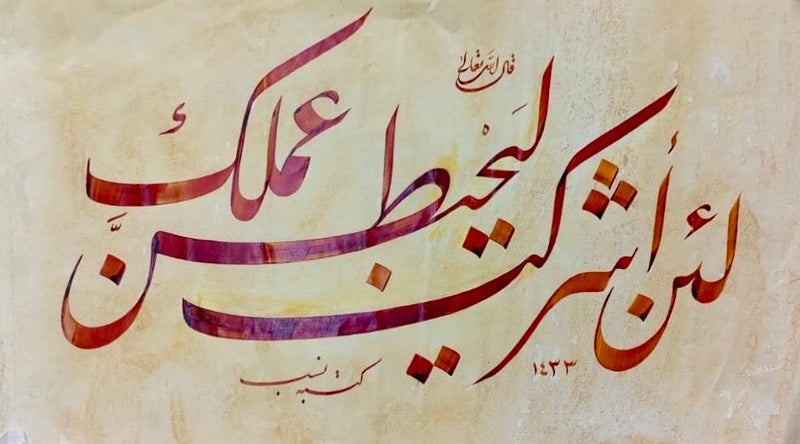 قال الله تعالى
لئن أشركت ليَحْبطنَّ عملك
١٤٣٣
كتبه